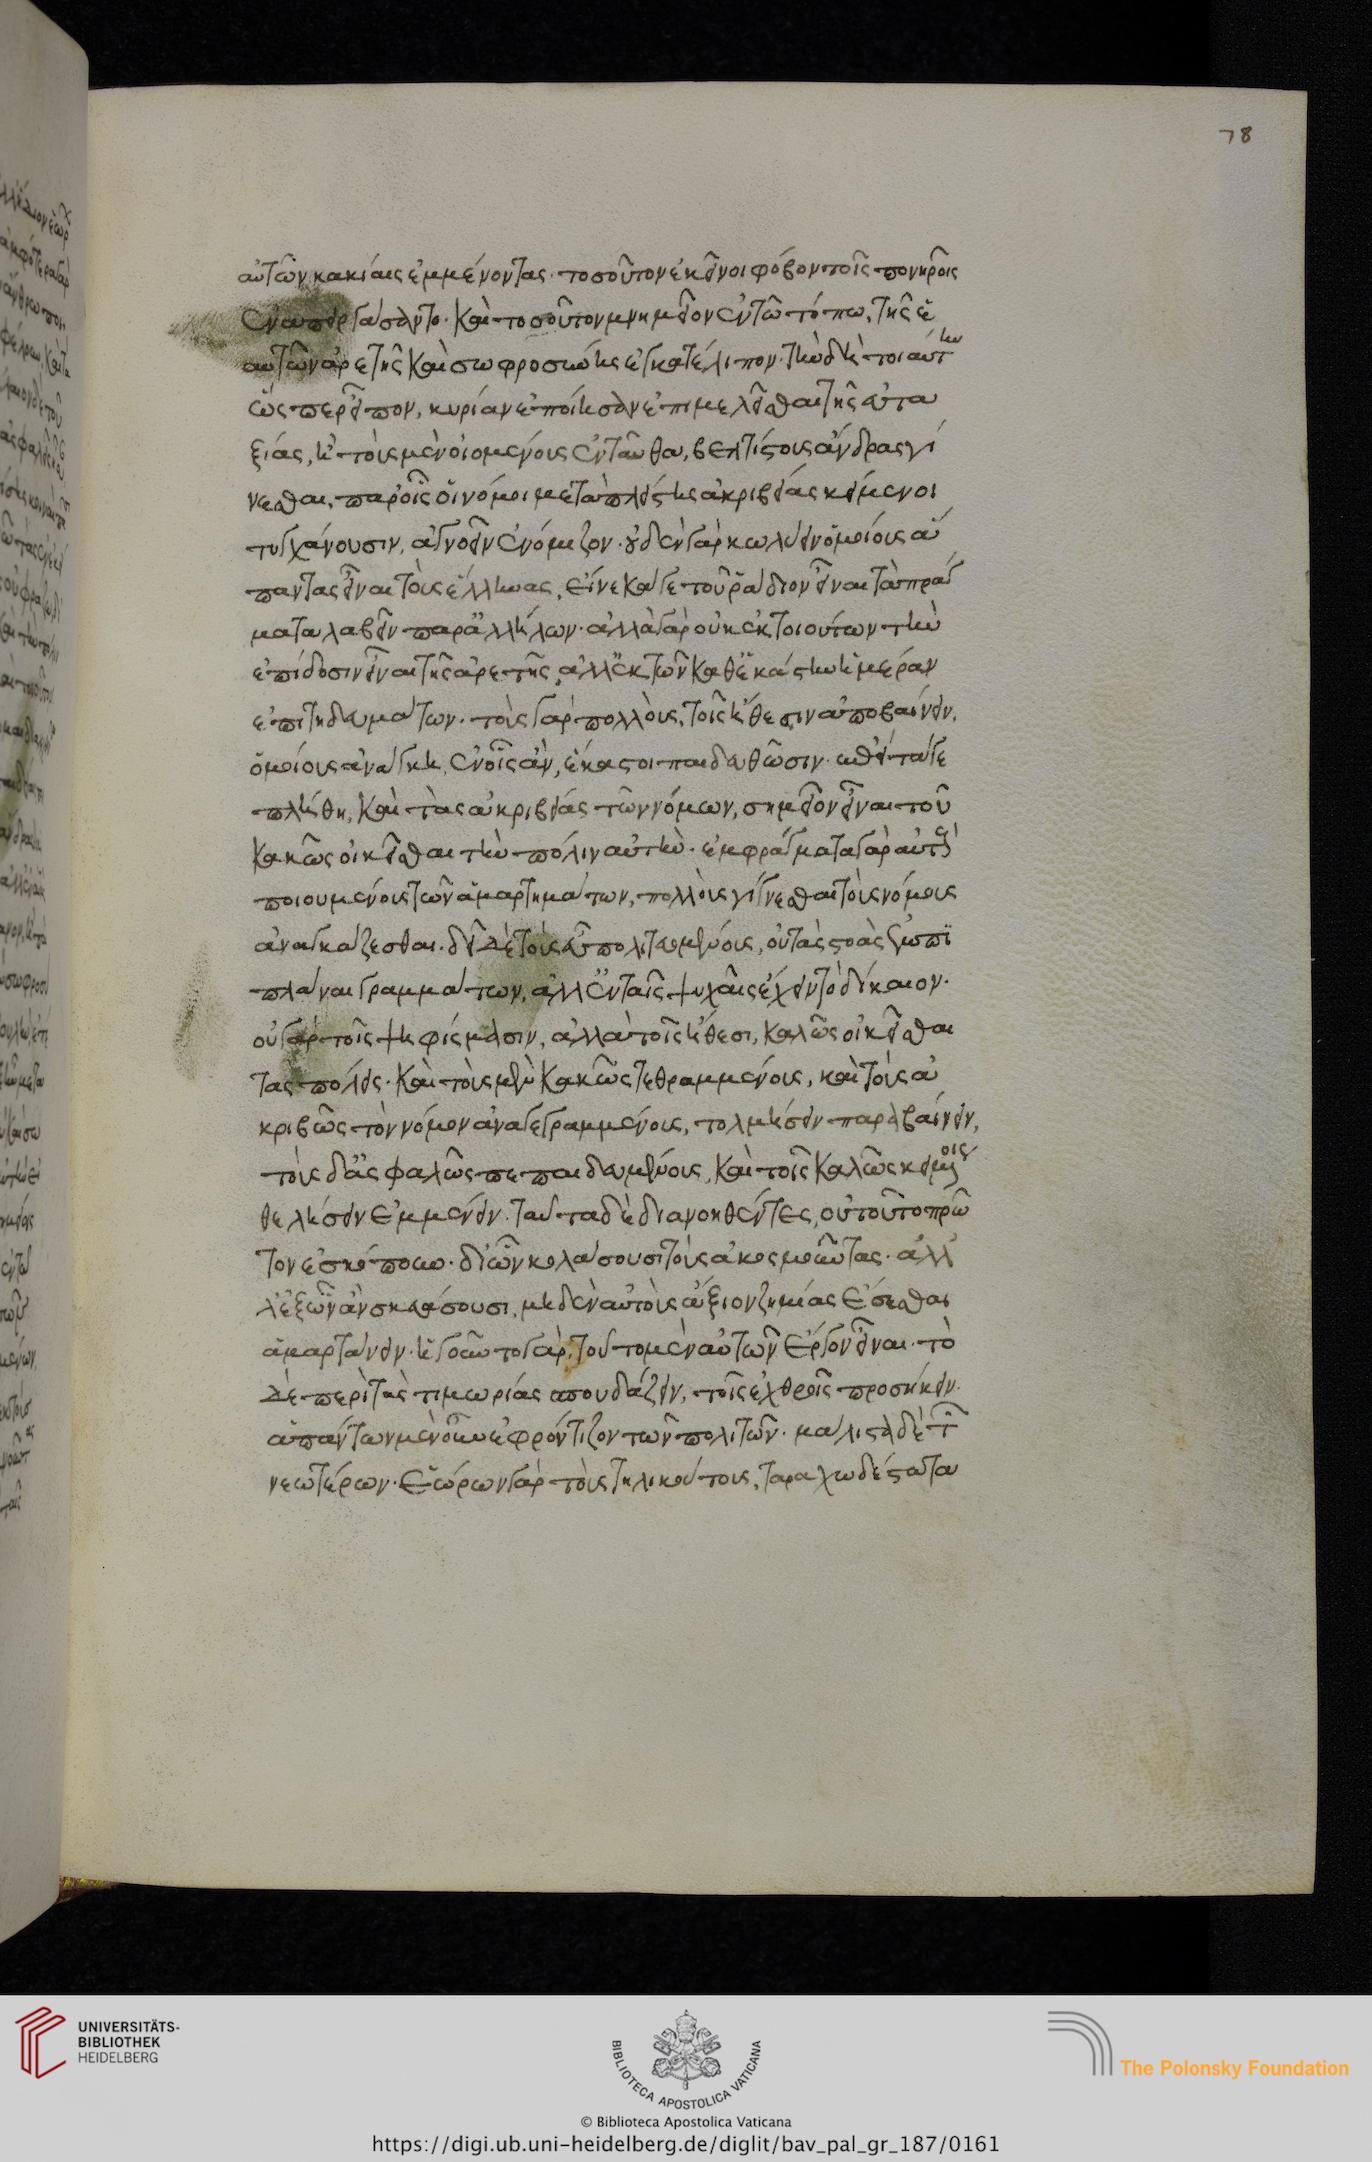 78
αὐτῶν κακίαις ἐμμένοντας· τοσοῦτον ἐκεῖνοι φόβον τοῖς πονηροῖς
ἐναπειργάσαντο· καὶ τοσοῦτον μνημεῖον ἐν τῶ τόπω, τῆς ἑ
αυτῶν ἀρετῆς καὶ σωφροσύνης ἐγκατέλιπον· τὴν δὴ τοιαύτην
ὥσπερ εἶπον, κυρίαν ἐποίησαν ἐπιμελεῖσθαι τῆς εὐτα
ξίας, ἣ τοὺς μὲν οἰομένους ἐνταῦθα, βελτίστους ἄνδρας γί
νεσθαι, παρ οἷς οἱ νόμοι μετὰ πλείστης ἀκριβείας κείμενοι
τυγχάνουσιν, ἀγνοεῖν ἐνόμιζον· οὐδὲν γὰρ κωλύειν ὁμοίους ἅ
παντας εἶναι τοὺς ἕλληνας, εἵνεκά γε τοῦ ῥάδιον εἶναι τὰ γράμ
ματα λαβεῖν παρ ἀλλήλων· ἀλλὰ γὰρ οὐκ ἐκ τοιούτων τὴν
ἐπίδοσιν εἶναι τῆς ἀρετῆς, ἀλλ ἐκ τῶν καθ ἑκάστην ἡμέραν
ἐπιτηδευμάτων· τοὺς γὰρ πολλοὺς, τοῖς ἤθεσιν ἀποβαίνειν,
ὁμοίους ἀνάγκη, ἐν οἷς ἂν, ἕκαστοι παιδευθῶσιν· ἐπεὶ τά γε
πλήθη, καὶ τὰς ἀκριβείας τῶν νόμων, σημεῖον εἶναι τοῦ
κακῶς οἰκεῖσθαι τὴν πόλιν αὐτήν· ἐμφράγματα γὰρ αὐτοὺς
ποιουμένους τῶν ἁμαρτημάτων, πολλοὺς τίθεσθαι τοὺς νόμους
ἀναγκάζεσθαι· δεῖ δὲ τοὺς εὖ πολιτευομένους, οὐ τὰς στοὰς ἐμπι
πλάναι γραμμάτων, ἀλλ ἐν ταῖς ψυχαῖς ἔχειν τὸ δίκαιον·
οὐ γὰρ τοῖς ψηφίσμασιν, ἀλλὰ τοῖς ἤθεσι, καλῶς οἰκεῖσθαι
τὰς πόλεις· καὶ τοὺς μὲν κακῶς τεθραμμένους, καὶ τοὺς ἀ
κριβῶς τὸν νόμον ἀναγεγραμμένους, τολμήσειν παραβαίνειν,
τοὺς δ ἀσφαλῶς πεπαιδευμένους, καὶ τοῖς καλῶς κειμένοις
θελήσειν ἐμμένειν· ταῦτα δὲ διανοηθέντες, οὐ τοῦτο πρῶ
τον ἐσκόπουν· δι ὧν κολάσουσι τοὺς ἀκοσμοῦντας· ἀλλ
λ ἐξ ὧν ἂν σκευάσουσι, μηδὲν αὐτοὺς ἄξιον ζημίας ἔσεσθαι
ἁμαρτάνειν· ἡγοῦντο γὰρ, τοῦτο μὲν αὐτῶν ἔργον εἶναι· τὸ
δὲ περὶ τὰς τιμωρίας σπουδάζειν, τοῖς ἐχθροῖς προσήκειν·
ἁπάντων μὲν οὖν ἐφρόντιζον τῶν πολιτῶν· μάλιστα δὲ τῶν
νεωτέρων· ἑώρων γὰρ τοὺς τηλικούτους, ταραχωδέστατα
UNIVERSITÄTS-
BIBLIOTHEK
HEIDELBERG
BIBLIOTECA APOSTOLICA VATICANA
The Polonsky Foundation
© Biblioteca Apostolica Vaticana
https://digi.ub.uni-heidelberg.de/diglit/bav_pal_gr_187/0161